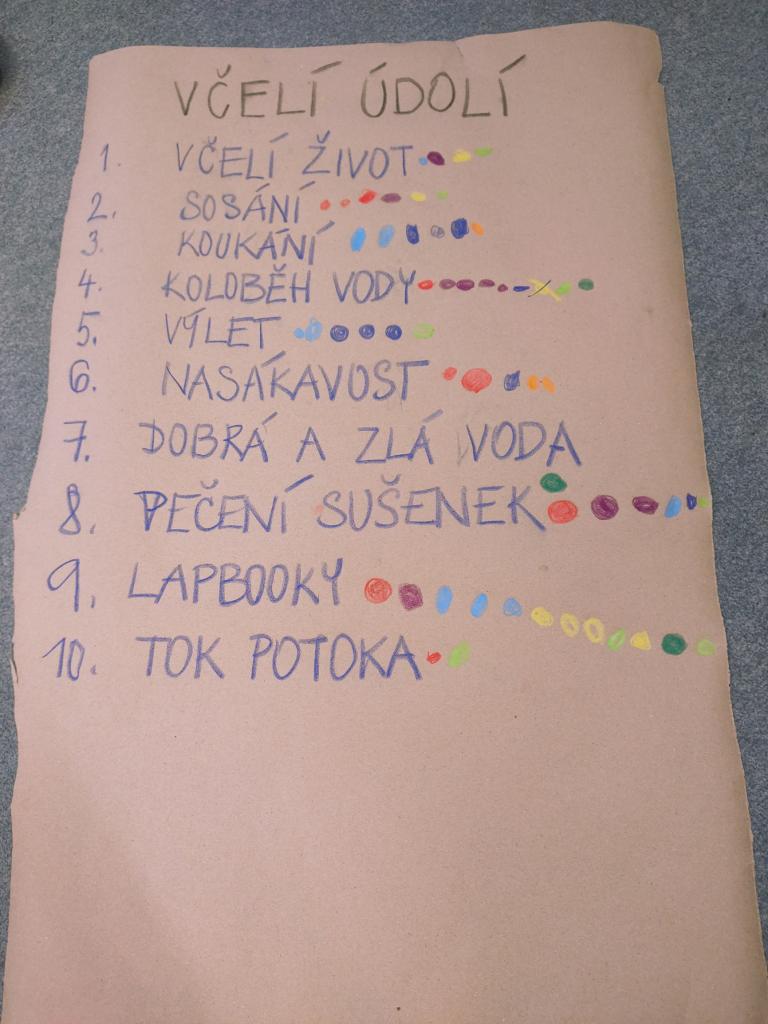 VČELÍ ÚDOLÍ
1. VČELÍ ŽIVOT
2. SOSÁNÍ
3. KOUKÁNÍ
4. KOLOBĚH VODY
5. VÝLET
6. NASÁKAVOST
7. DOBRÁ A ZLÁ VODA
8. PEČENÍ SUŠENEK
9. LAPBOOKY
10. TOK POTOKA